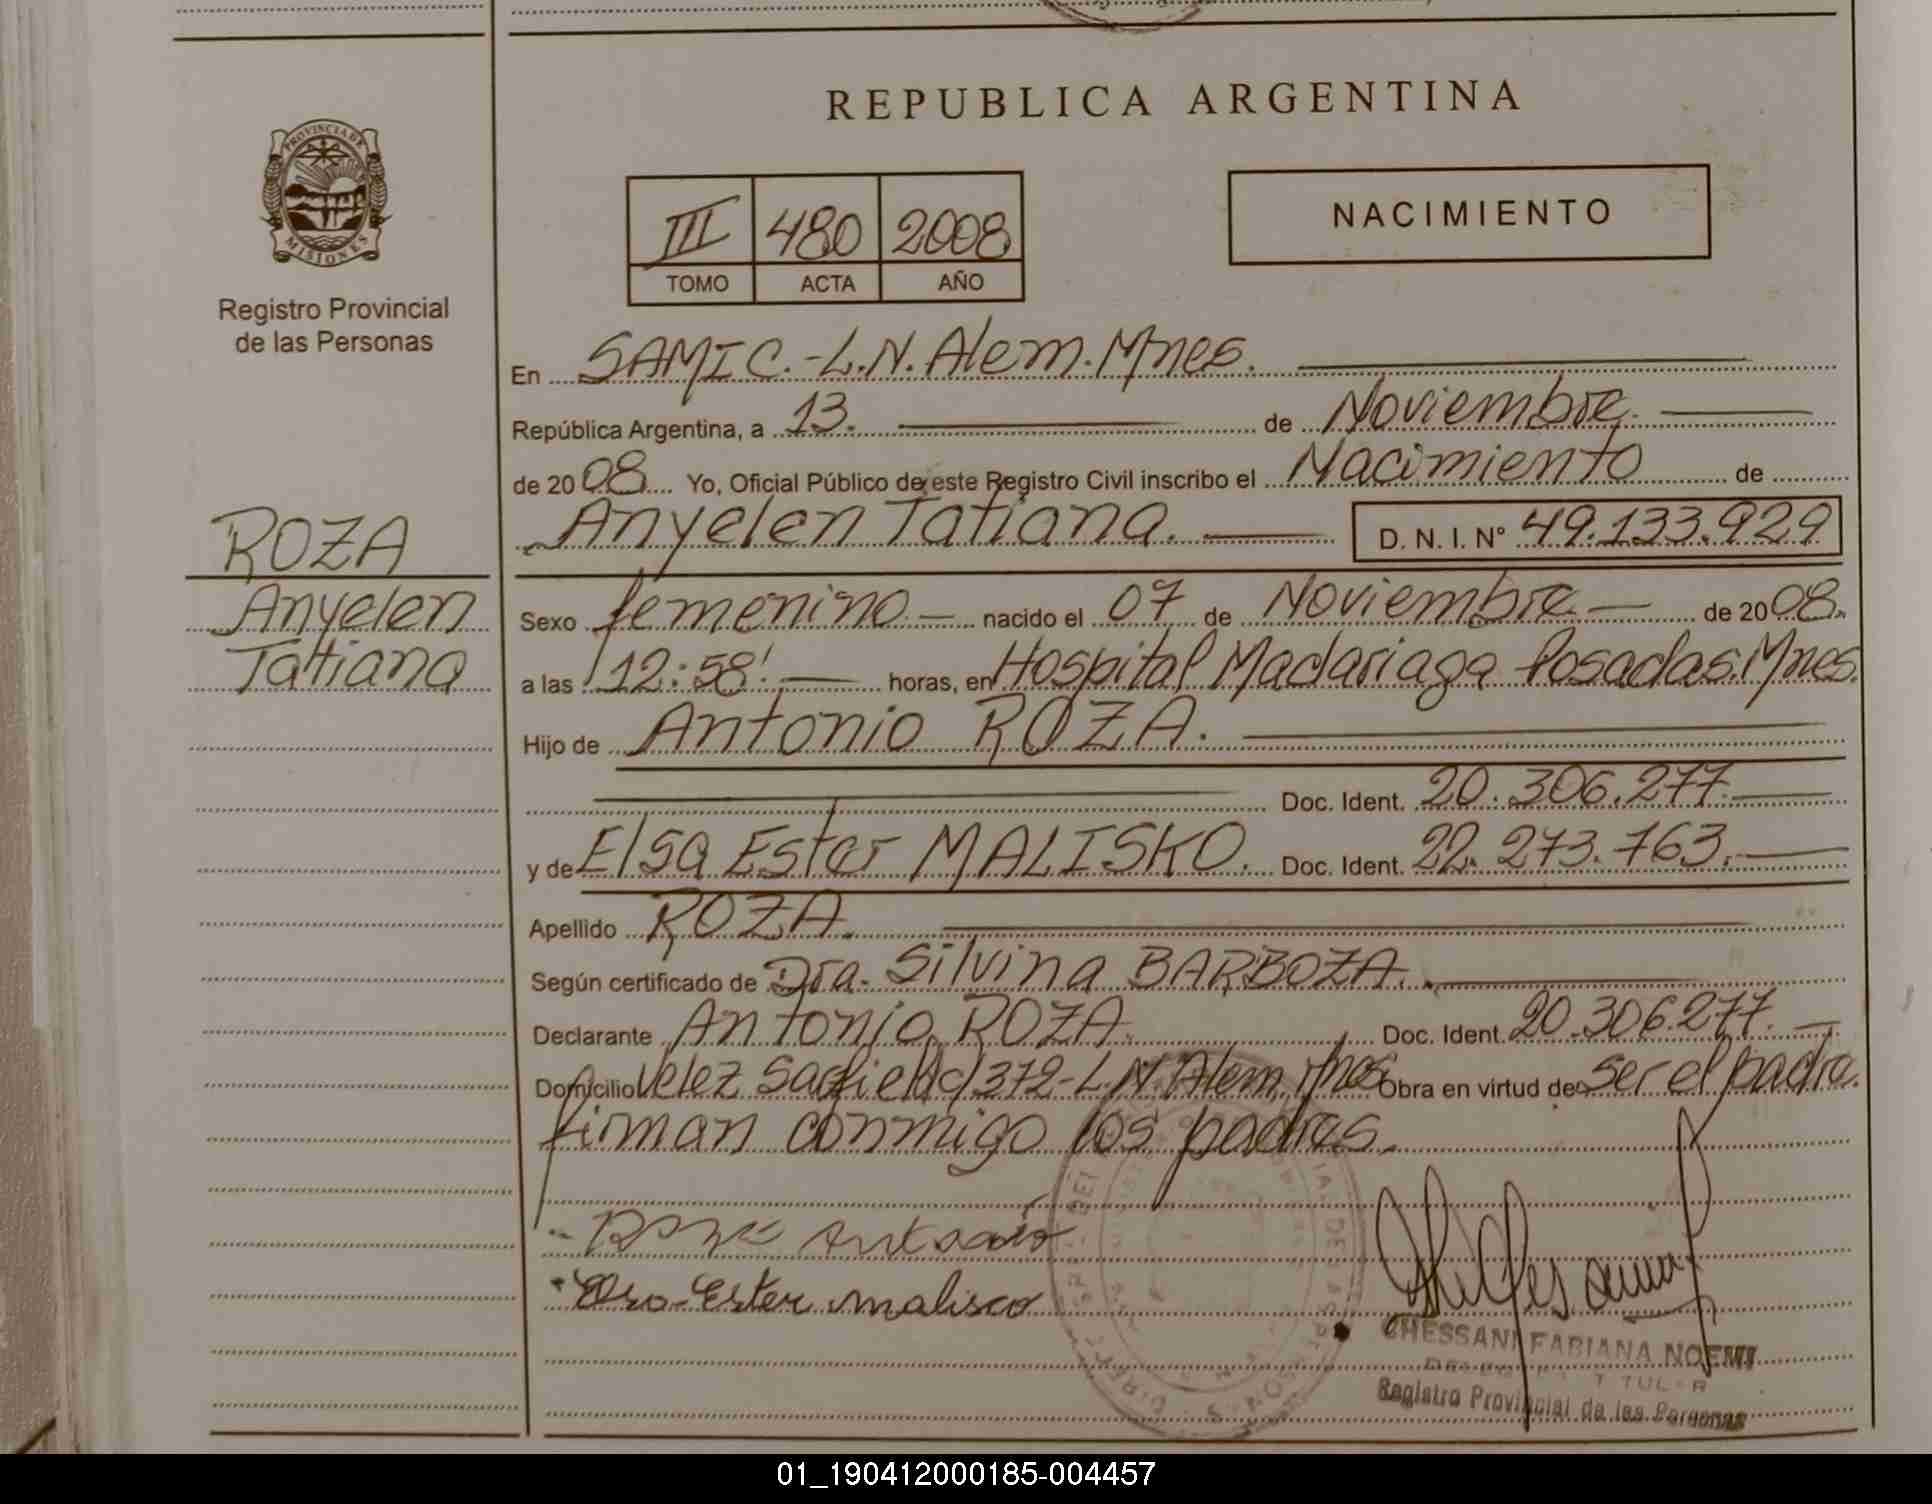 REPUBLICA ARGENTINA
PROVINCIA DE
MISIONES
Registro Provincial
de las Personas
III 480 2008
TOMO ACTA AÑO
NACIMIENTO
En SAMIC.-L.N.Alem.Mnes.
República Argentina, a 13. de Noviembre.
de 2008 Yo, Oficial Público de este Registro Civil inscribo el Nacimiento de
Anyelen Tatiana. D. N. I. N° 49.133.929
ROZA
Anyelen
Tatiana
Sexo femenino nacido el 07 de Noviembre de 2008.
a las 12:58' horas, en Hospital Madariaga Posadas.Mnes.
Hijo de Antonio ROZA.
Doc. Ident. 20.306.277.
y de Elsa Ester MALISKO. Doc. Ident. 22.273.763.
Apellido ROZA.
Según certificado de Dra. Silvina BARBOZA.
Declarante Antonio ROZA. Doc. Ident. 20.306.277.
Domicilio Velez Sarfield 372-L.N.Alem, Mnes Obra en virtud de ser el padre.
firman conmigo los padres.
Ester malisco
CHESSANI FABIANA NOEMI
TITULAR
Registro Provincial de las Personas
01_190412000185-004457